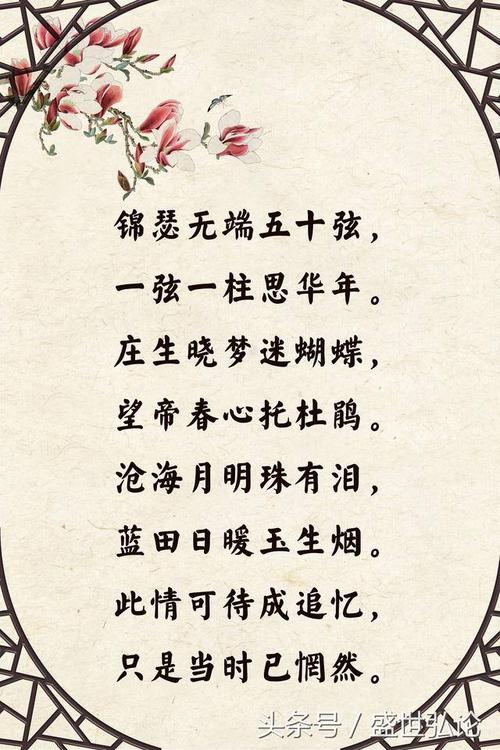 锦瑟无端五十弦，
一弦一柱思华年。
庄生晓梦迷蝴蝶，
望帝春心托杜鹃。
沧海月明珠有泪，
蓝田日暖玉生烟。
此情可待成追忆，
只是当时已惘然。
头条号 / 盛世弘论